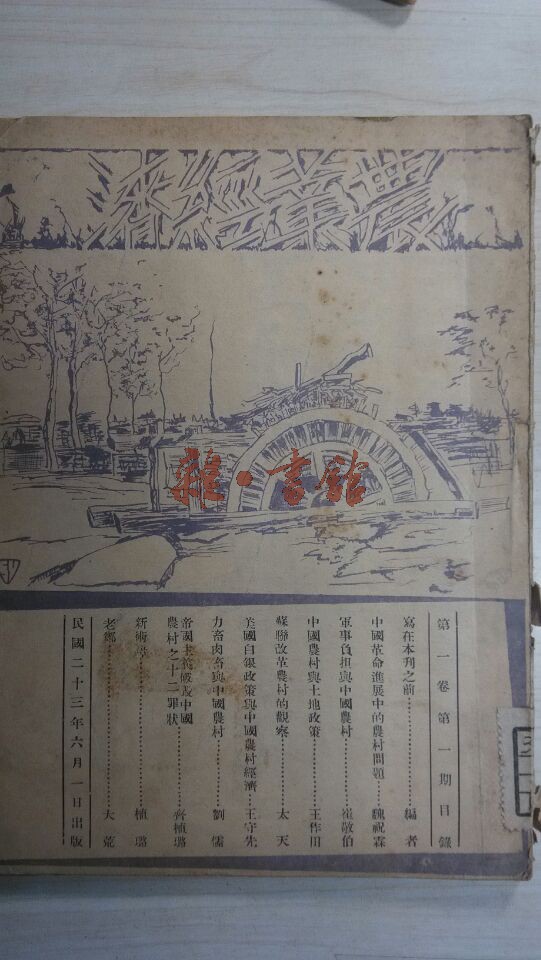 村經業農
雜·書館
第一卷第一期目錄
寫在本刊之前⋯⋯編者
中國革命進展中的農村問題⋯⋯魏祝霖
軍事負担與中國農村⋯⋯崔敬伯
中國農村與土地政策⋯⋯王作田
蘇聯改革農村的觀察⋯⋯太天
美國白銀政策與中國農村經濟⋯⋯王守先
力畜肉畜與中國農村⋯⋯劉儒
帝國主義破壞中國
農村之十二罪狀⋯⋯齊植璐
新術⋯⋯植璐
老鄉⋯⋯大荒
民國二十三年六月一日出版